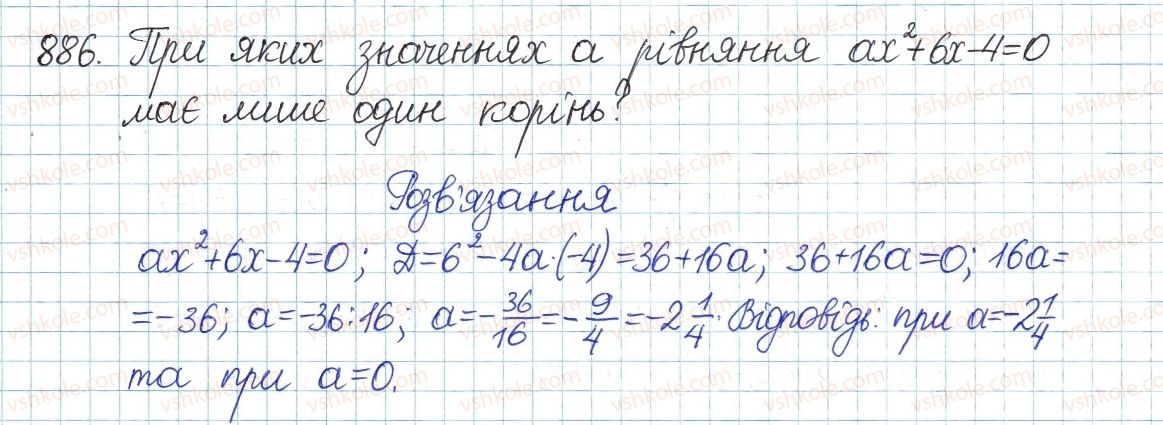 886. При яких значеннях а рівняння ax²+6x-4=0
має лише один корінь?
Розв'язання
ax²+6x-4=0; Д=6²-4а·(-4)=36+16а; 36+16а=0; 16а=
=-36; а=-36:16; а=-36/16=-9/4=-2 1/4. Відповідь: при а=-2 1/4
та при а=0.